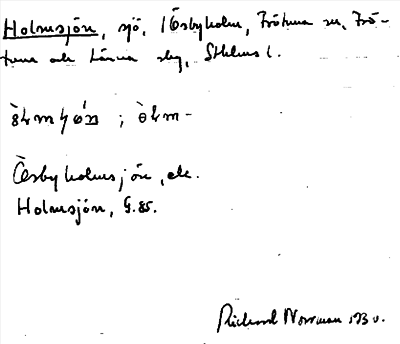 Holmsjön, sjö, Österbyholm, Frötuna sn, Frö-
tuna och Länna skg, Sthlms l.
; òɫm-
Österbyholmssjön, ek.
Holmsjön, G.85.
Richard Norrman 1930.